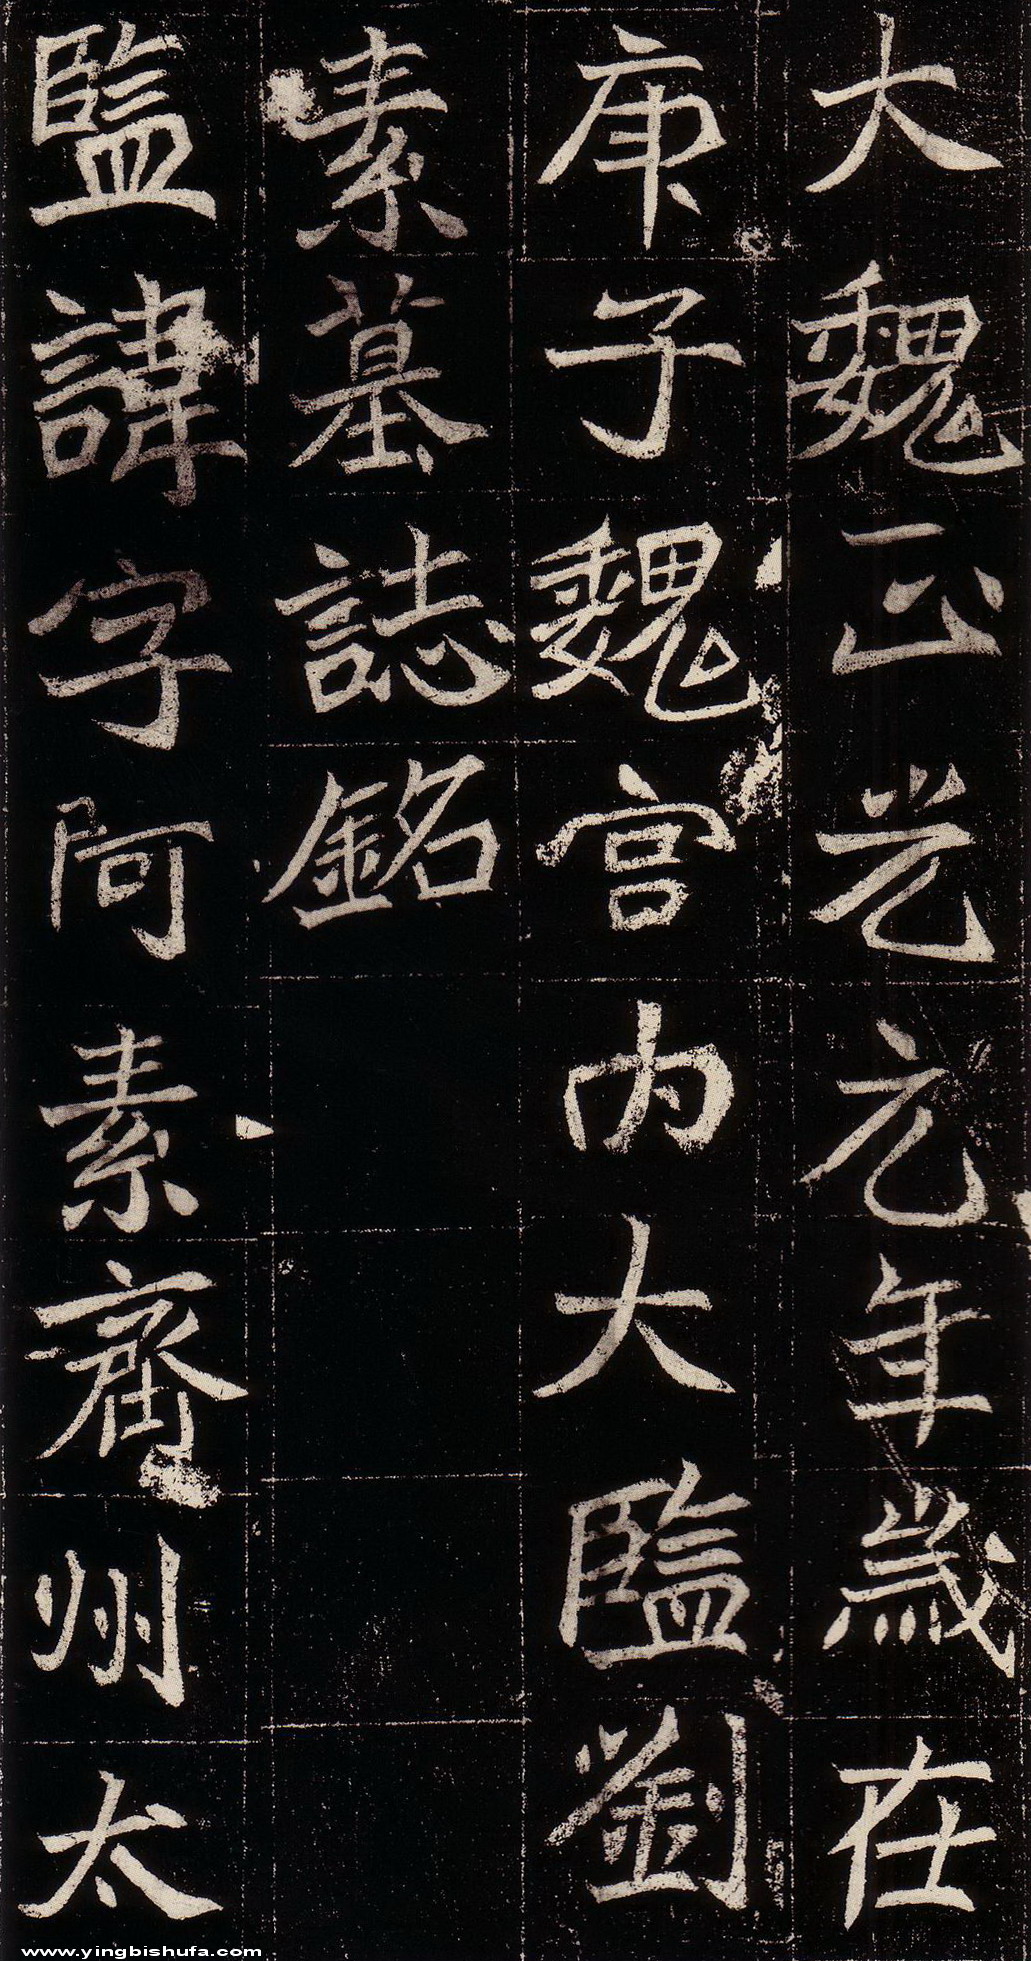 大魏正光元年歲在
庚子魏宮內大監劉
素墓誌銘
監諱字阿素齊州太
www.yingbishufa.com